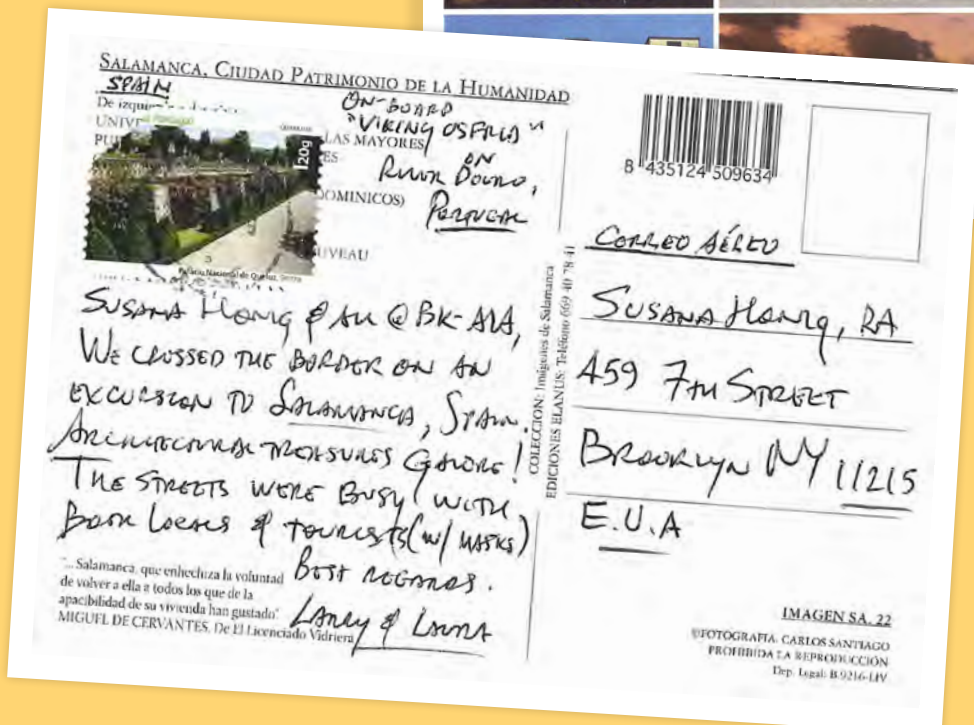 SALAMANCA, CIUDAD PATRIMONIO DE LA HUMANIDAD
SPAIN
De izqui
UNIVE
PU
LAS MAYORES
ES
DOMINICOS)
UVEAU
Portugal
120g
Palácio Nacional de Queluz, Sintra
ON-BOARD
"VIKING OSFRID"
ON
RIVER DOURO,
PORTUGAL
SUSANA HONG & ALL @ BK-AIA,
WE CROSSED THE BORDER ON AN
EXCURSION TO SALAMANCA, SPAIN.
ARCHITECTURAL TREASURES GALORE!
THE STREETS WERE BUSY WITH
BOTH LOCALS & TOURISTS (W/ MASKS)
BEST REGARDS.
LARRY & LAURA
"... Salamanca, que enhechiza la voluntad
de volver a ella a todos los que de la
apacibilidad de su vivienda han gustado"
MIGUEL DE CERVANTES. De El Licenciado Vidriera
COLECCION: Imágenes de Salamanca
EDICIONES ELANUS: Teléfono 669 40 78 41
8 435124 509634
CORREO AÉREO
SUSANA HONG, RA
459 7TH STREET
BROOKLYN NY 11215
E.U.A
IMAGEN SA. 22
©FOTOGRAFIA: CARLOS SANTIAGO
PROHIBIDA LA REPRODUCCIÓN
Dep. Legal: B.9216-LIV